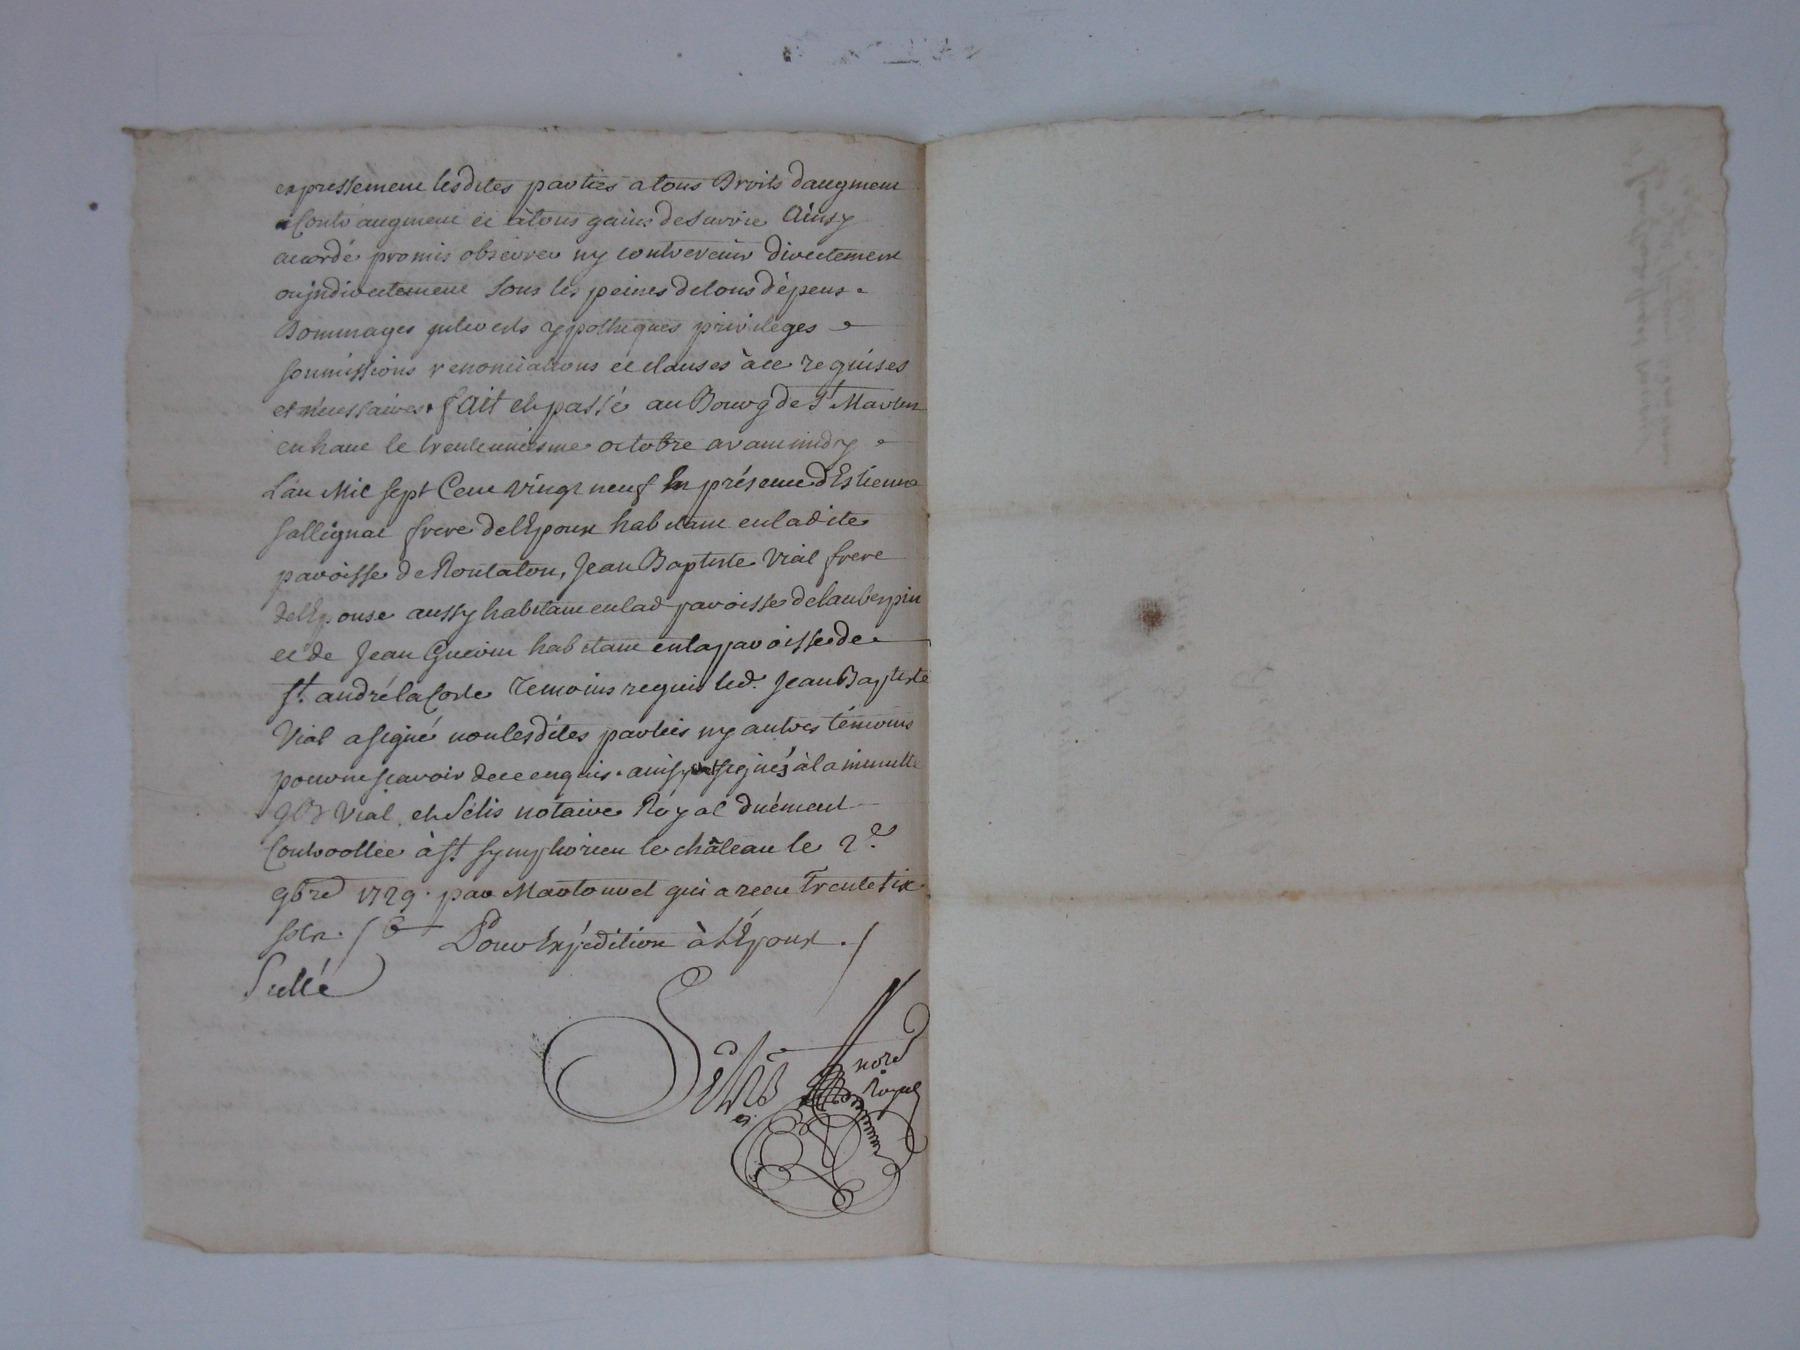 expressement lesdites parties a tous Droits daugment
Contr'augment et à tous gains de survie Ainsy
acordé promis observer ny contrevenir directement
ou jndirectement sous les peines de tous dépens
Dommages jnterests ypotheques privileges
soumissions renonciations et clauses à ce requises
et nécessaires. fait et passé au Bourg de St Martin
en haut le trente uniesme octobre avant midy
L'an Mil sept Cent vingt neuf En présence d'Estienne
sallignat frere de l'Epoux habitant en la dite
paroisse de Rontalon, Jean Baptiste Vial frere
de l'Epouse aussy habitant en lad paroisse de laubespin
et de Jean Guerin habitant en la paroisse de
st. andré la Coste temoins requis led. Jean Baptiste
Vial a signé non lesdites parties ny autres témoins
pour ne scavoir de ce enquis. ainsy signés à la minutte
Vial, et Sétis notaire Royal duément
Controollée à st symphorien le château le 2e.
9bre 1729. par Martouret qui a receu Trente six
sols. Pour Expédition à l'Epoux.
Sellé
Sétis
nore
Royal